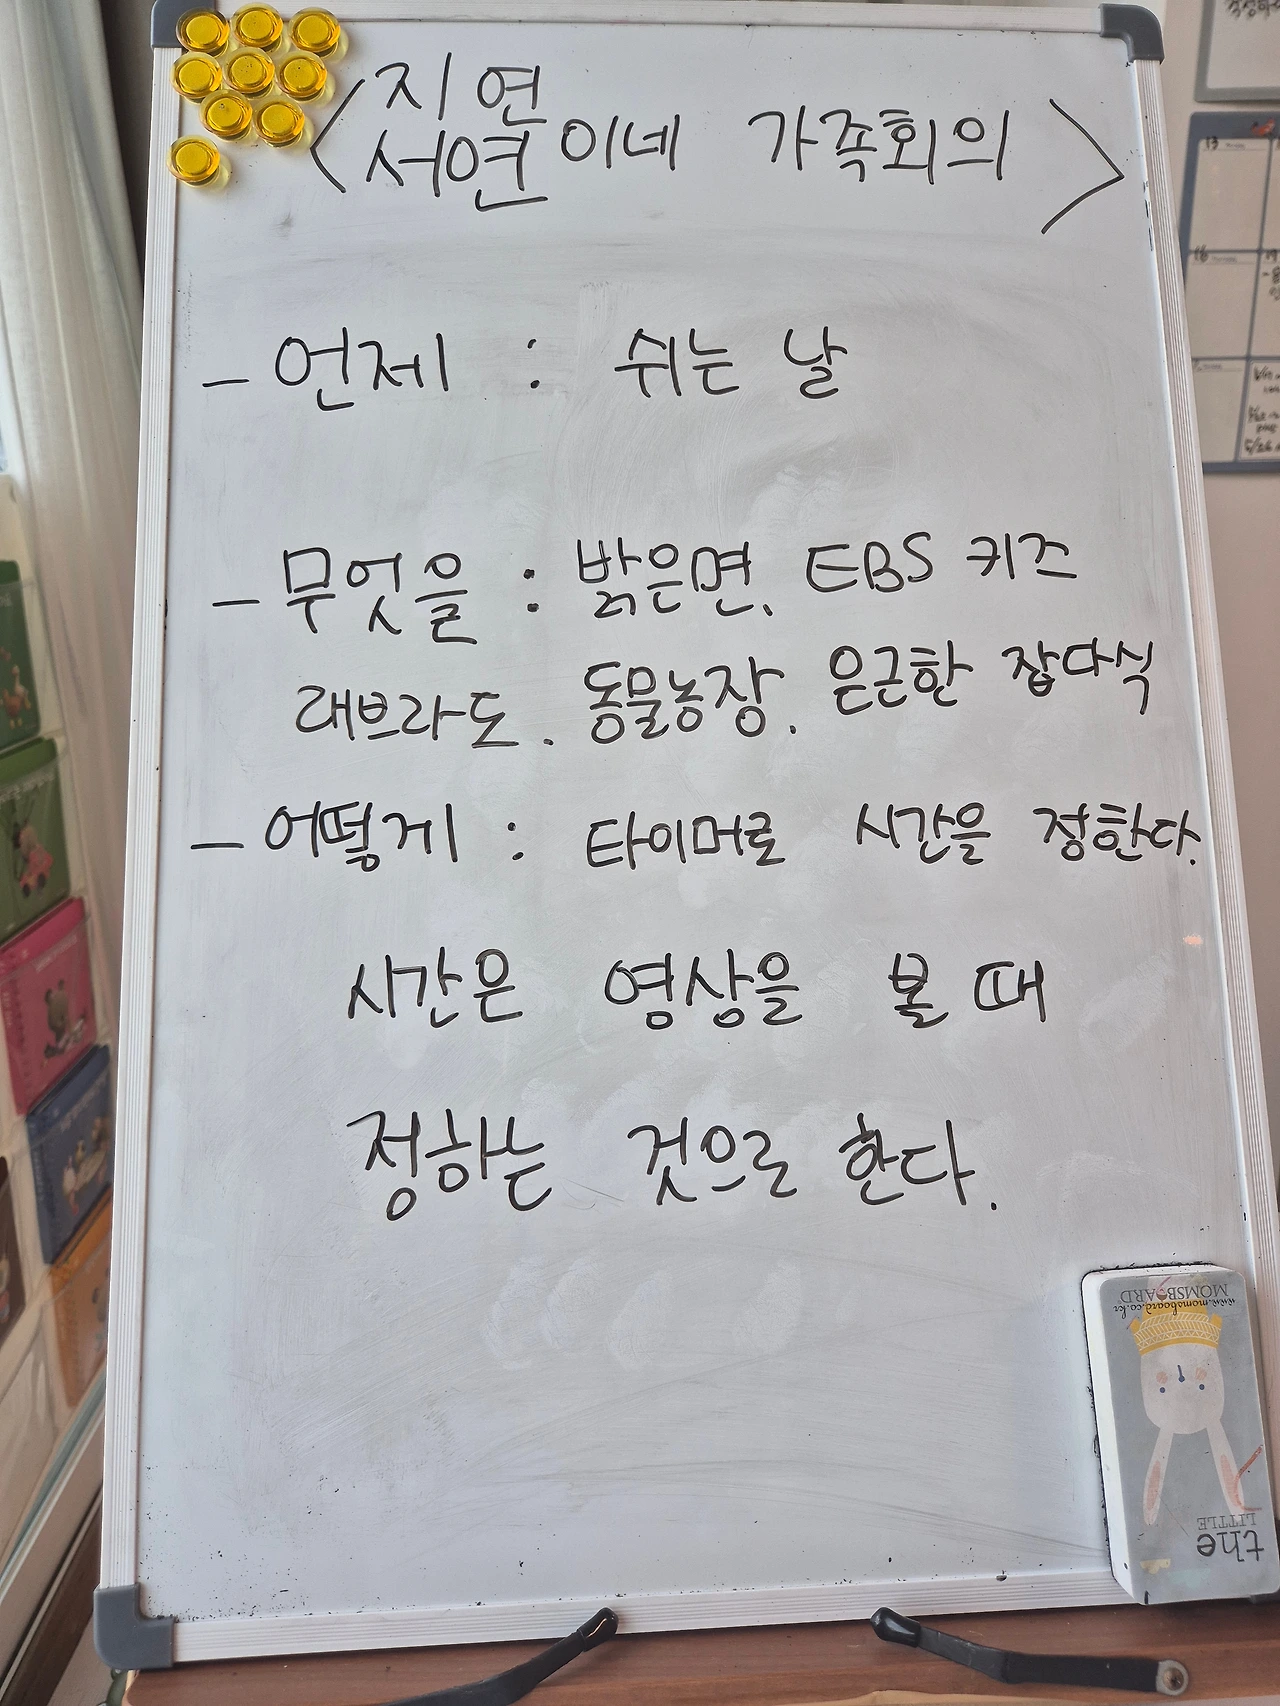 <지연
서연이네 가족회의>
- 언제 : 쉬는 날
- 무엇을 : 밝은면, EBS 키즈
래브라도. 동물농장. 은근한 잡다식
- 어떻게 : 타이머로 시간을 정한다.
시간은 영상을 볼 때
정하는 것으로 한다.
www.momsboard.co.kr
MOMSBOARD
the
LITTLE
13
16